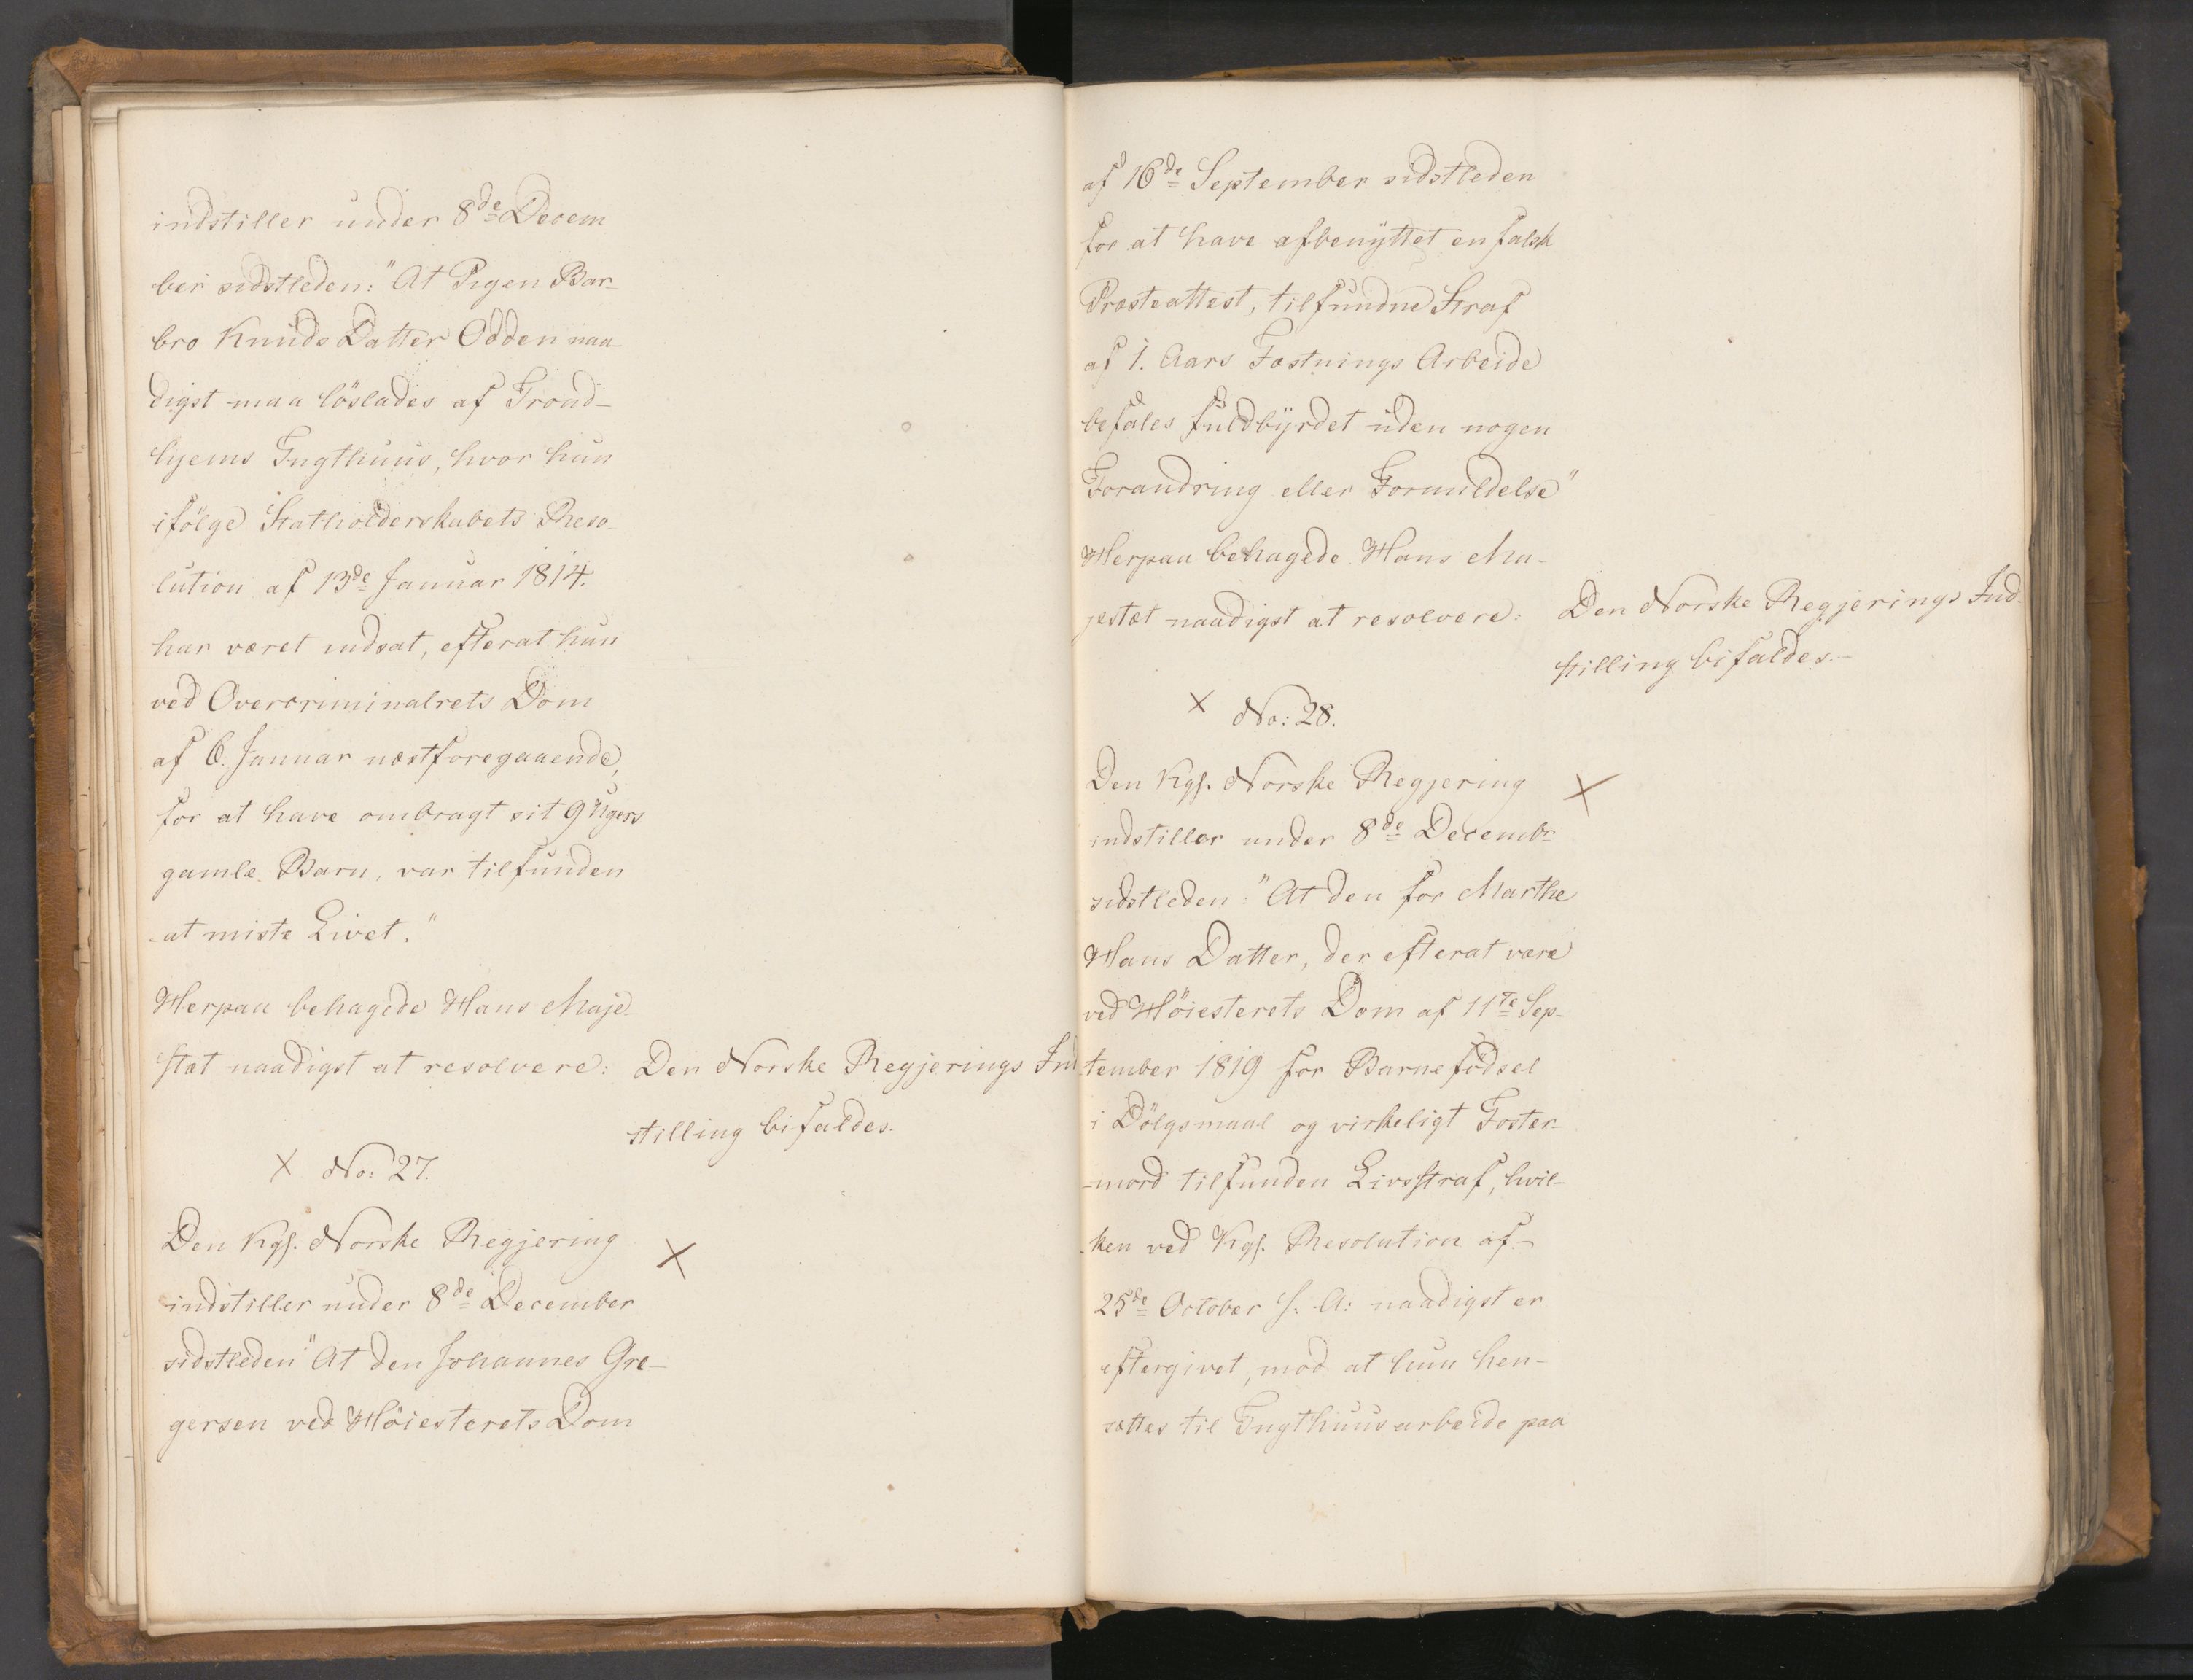 indstiller under 8de Decem
ber sidstleden: "At Pigen Bar-
bro Knuds Datter Odden naa-
digst maa löslades af Trond-
hjems Tugthuus, hvor hun
ifölge Statholderskabets Reso-
lution af 13de Januar 1814.
har været indsat, efterat hun
ved Overcriminalrets Dom
af 6. Januar næstforegaaende,
for at have ombragt sit 9 Ugers
gamle Barn, var tilfunden
at miste Livet."
Herpaa behagede Hans Maje-
stæt naadigst at resolvere:
Den Norske Regjerings Ind
stilling bifaldes.
X No: 27.
Den Kgl. Norske Regjering X
indstiller under 8de December
sidstleden "At den Johannes Gre-
gersen ved Höiesterets Dom
af 16de September sidstleden
for at have afbenyttet en falsk
Præsteattest, tilfundne Straf
af 1. Aars Fæstnings Arbeide
befales fuldbyrdet uden nogen
Forandring eller Formildelse"
Herpaa behagede Hans Ma-
jestæt naadigst at resolvere:
Den Norske Regjerings Ind-
stilling bifaldes.-
X No: 28.
Den Kgl. Norske Regjering X
indstiller under 8de Decembr
sidstleden: "At den for Marthe
Hans Datter, der efterat være
ved Höiesterets Dom af 11te Sep-
tember 1819 for Barnefödsel
i Dölgsmaal og virkeligt Foster-
mord tilfunden Livsstraf, hvil-
ken ved Kgl. Resolution af
25de October s. A: naadigst er
eftergivet, mod at hun hen-
sættes til Tugthuusarbeide paa